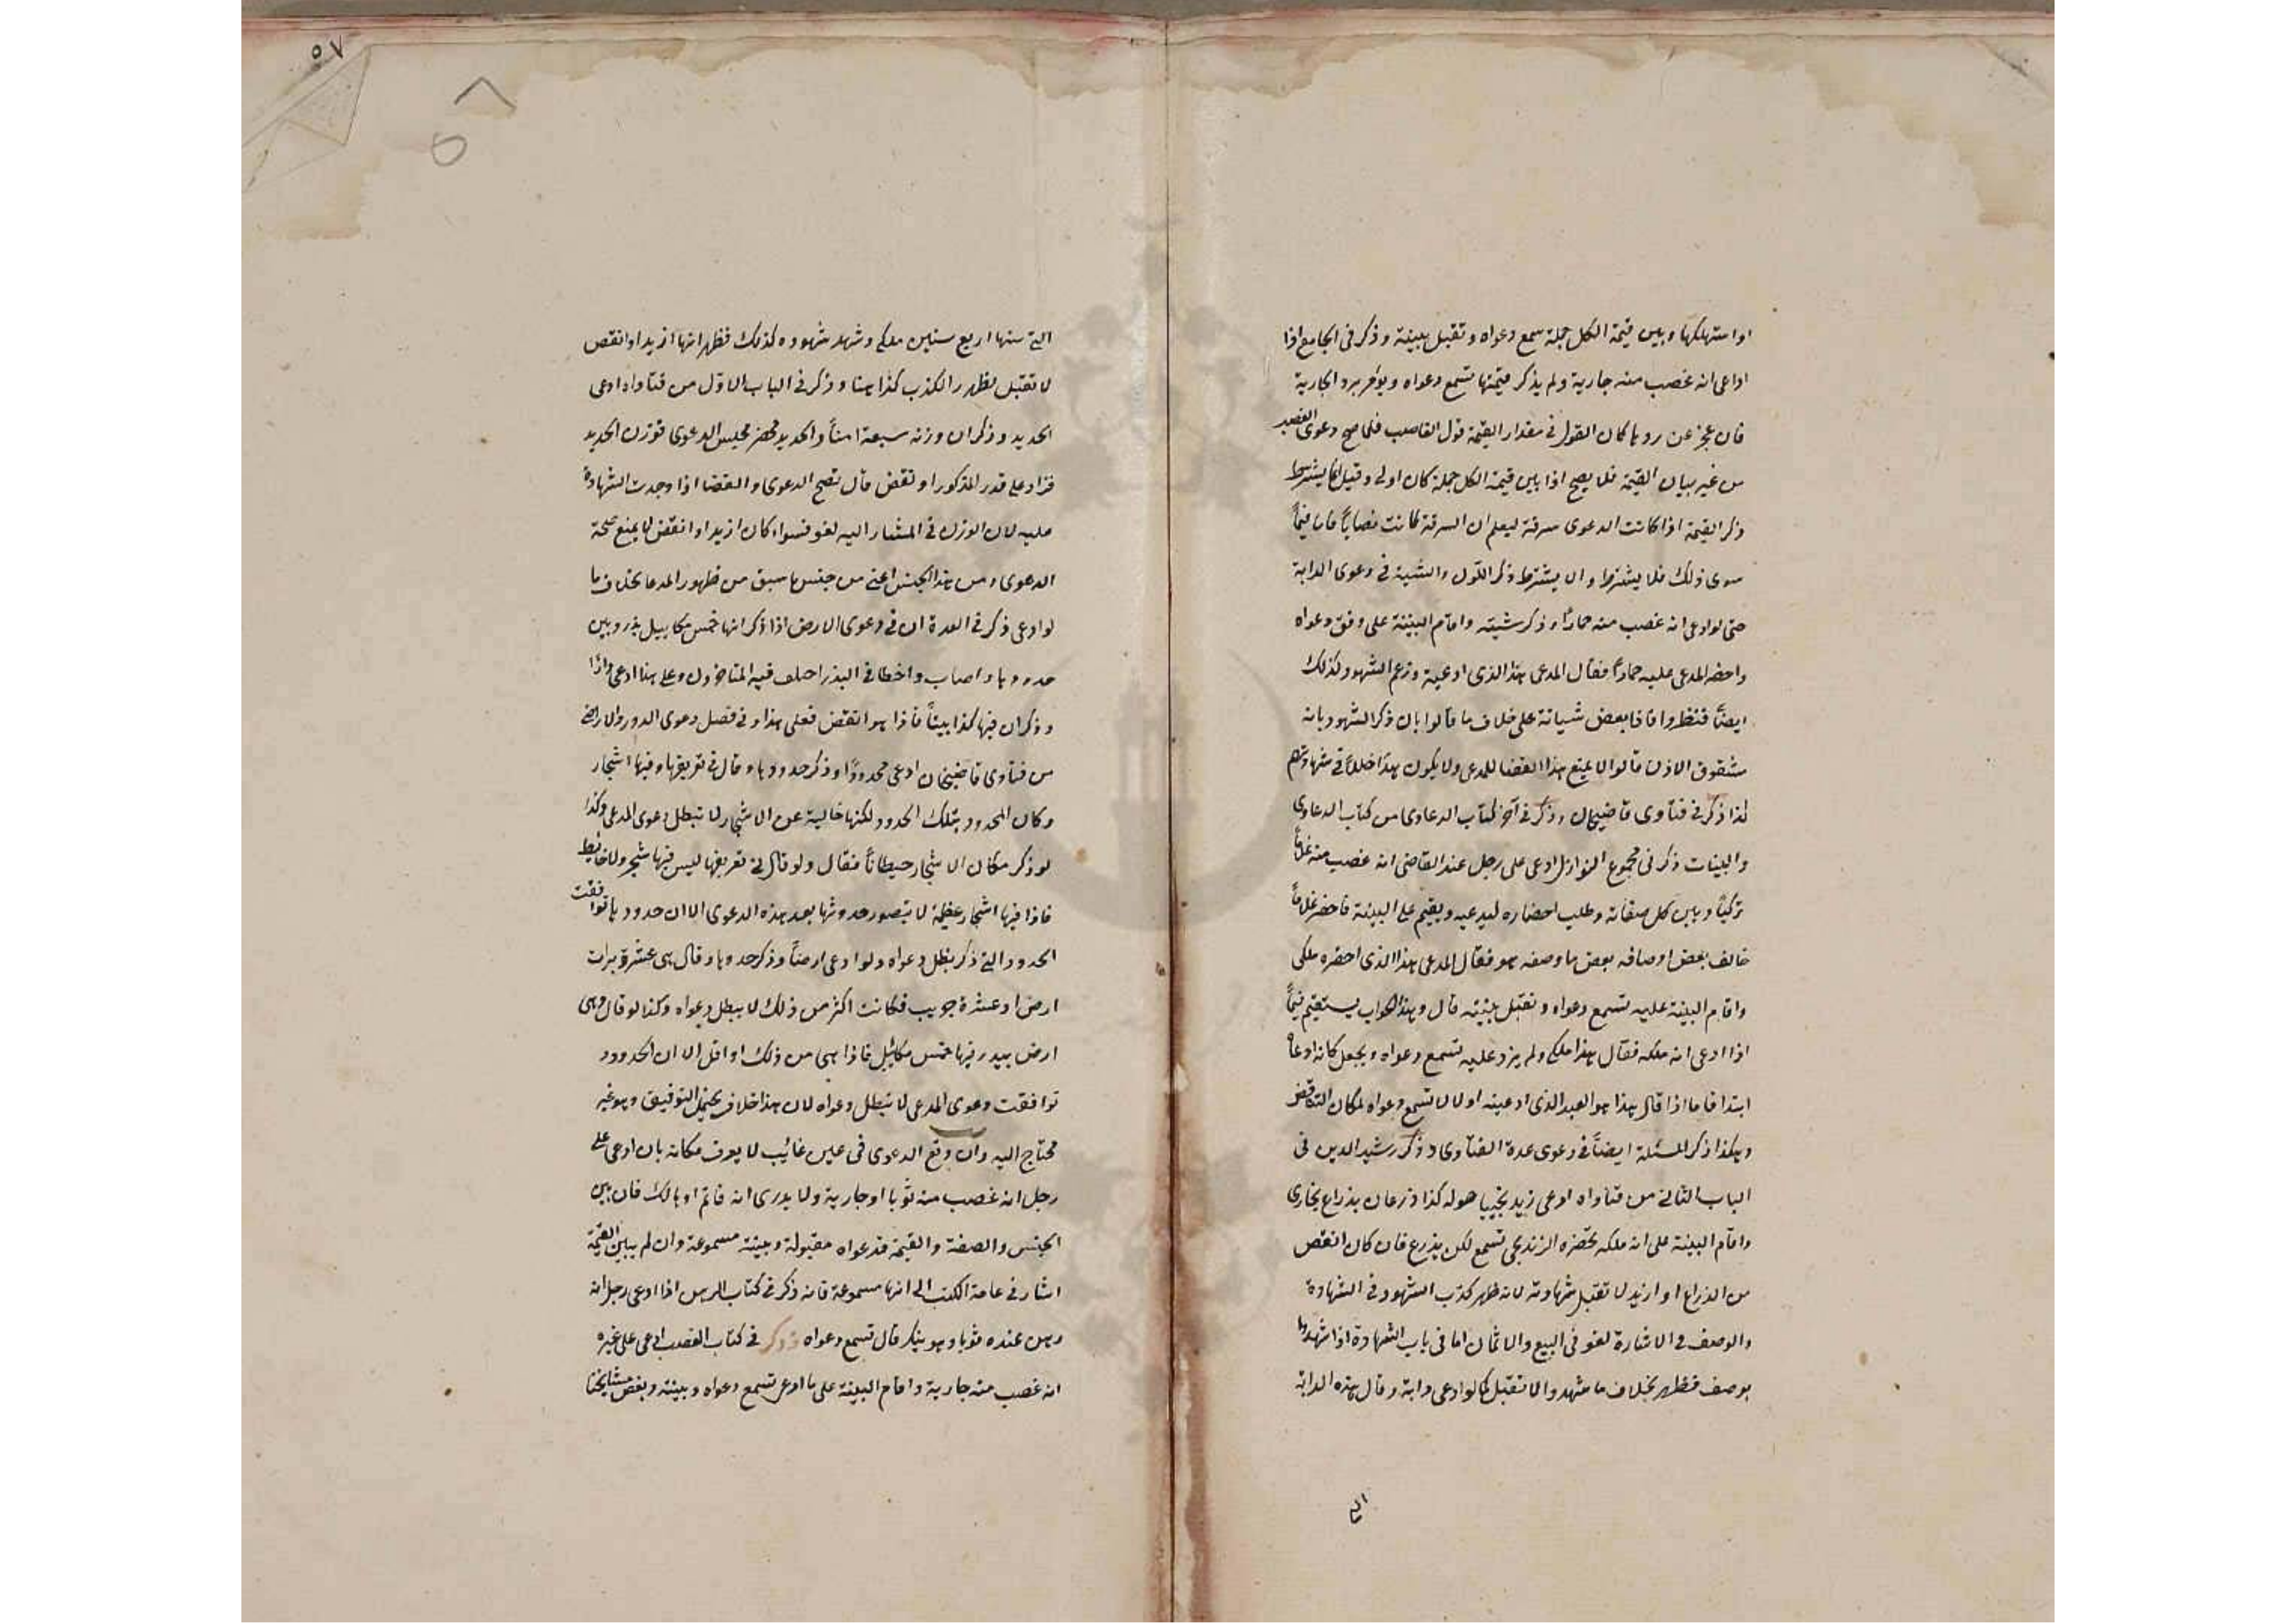 او استهلكها وبين قيمة الكل جملة سمع دعواه وتقبل بينته وذكر فى الجامع اذا
ادعى انه غصب منه جارية ولم يذكر قيمتها تسمع دعواه ويؤمر برد الجارية
فان عجز عن ردها كان القول فى مقدار القيمة قول الغاصب فلما صح دعوى الغصب
من غير بيان القيمة فلما يصح اذا بين قيمة الكل جملة كان اولى وقيل انما يشترط
ذكر القيمة اذا كانت الدعوى سرقة ليعلم ان السرقة كانت نصابا فاما فيما
سوى ذلك فلا يشترط والا يشترط ذكر اللون والشية فى دعوى الدابة
حتى لو ادعى انه غصب منه حمارا وذكر شيته واقام البينة على وفق دعواه
واحضر المدعى عليه حمارا فقال المدعى هذا الذى ادعيته وزعم الشهود كذلك
ايضا فنظروا فاذا بعض شياته على خلاف ما قالوا بان ذكر الشهود بانه
مشقوق الاذن قالوا لا يمنع هذا القضا للمدعى ولا يكون هذا خللا فى شهادتهم
كذا ذكر فى فتاوى قاضيخان وذكر فى آخر كتاب الدعاوى من كتاب الدعاوى
والبينات ذكر فى مجموع النوازل ادعى على رجل عند القاضى انه غصب منه غلاما
تركيا وبين كل صفاته وطلب احضاره ليدعيه ويقيم عليه البينة فاحضر غلاما
خالف بعض اوصافه بعض ما وصفه هو فقال المدعى هذا الذى احضره ملكى
واقام البينة عليه تسمع دعواه وتقبل بينته قال وهذا الجواب يستقيم فيما
اذا ادعى انه ملكه فقال هذا ملكى ولم يزد عليه تسمع دعواه ويجعل كانه ادعاه
ابتدا فاما اذا قال هذا هو العبد الذى ادعيته اولا لا تسمع دعواه لمكان التناقض
وهكذا ذكر المسئلة ايضا فى دعوى عدة الفتاوى وذكر رشيد الدين فى
الباب الثانى من فتاواه ادعى زيد يخيبا هوله كذا ذرعان بذراع بخارى
واقام البينة على انه ملكه بحضرة الزنديجى تسمع لكن يذرع فان كان انقص
من الذراع او ازيد لا تقبل شهادته لانه ظهر كذب الشهود فى الشهادة
والوصف فى الاشارة لغو فى البيع والاثمان اما فى باب الشهادة اذا شهدوا
بوصف فظهر بخلاف ما شهدوا لا تقبل كما لو ادعى دابة وقال هذه الدابة
التى
٥٧
٥٧
التى سنها اربع سنين ملكى وشهد شهوده كذلك فظهر انها ازيد او انقص
لا تقبل لظهور الكذب كذا هنا وذكر فى الباب الاول من فتاواه ادعى
الحديد وذكر ان وزنه سبعة امنا والحديد محضر مجلس الدعوى فوزن الحديد
فزاد على قدر المذكور او نقص قال تصح الدعوى والقضا اذا وجدت الشهادة
عليه لان الوزن فى المشار اليه لغو فسواء كان ازيد او انقص لا يمنع صحة
الدعوى ومن هذا الجنس اعنى من جنس ما سبق من ظهور المدعا بخلاف ما
لو ادعى ذكر فى العدة ان فى دعوى الارض اذا ذكر انها خمس مكاييل بذر وبين
حدودها واصاب واخطا فى البذر اختلف فيه المتاخرون وعلى هذا ادعى دارا
وذكر ان فيها كذا بيتا فاذا هو انقص فعلى هذا وفى فصل دعوى الدور والاراضى
من فتاوى قاضيخان ادعى محدودا وذكر حدودها وقال فى تعريفها وفيها اشجار
وكان المحدود بتلك الحدود لكنها خالية عن الاشجار لا تبطل دعوى المدعى وكذا
لو ذكر مكان الاشجار حيطانا فقال ولو قال فى تعريفها ليس فيها شجر ولا حائط
فاذا فيها اشجار عظيمة لا يتصور حدوثها بعد هذه الدعوى الا ان حدودها توافقت
الحدود التى ذكر بطل دعواه ولو ادعى ارضا وذكر حدودها وقال هى عشرة دبرات
ارض او عشرة جريب فكانت اكثر من ذلك لا يبطل دعواه وكذا لو قال وهى
ارض يبدر فيها خمس مكاييل فاذا هى من ذلك او اقل الا ان الحدود
توافقت دعوى المدعى لا تبطل دعواه لان هذا خلاف يحتمل التوفيق وهو غير
محتاج اليه وان وقع الدعوى فى عين غائب لا يعرف مكانه بان ادعى على
رجل انه غصب منه ثوبا او جارية ولا يدرى انه قائم او هالك فان بين
الجنس والصفة والقيمة فدعواه مقبولة وبينته مسموعة وان لم يبين القيمة
اشار فى عامة الكتب الى انها مسموعة فانه ذكر فى كتاب الرهن اذا ادعى رجل انه
رهن عنده ثوبا وهو ينكر قال تسمع دعواه وذكر فى كتاب الغصب ادعى على غيره
انه غصب منه جارية واقام البينة على ما ادعى تسمع دعواه وبينته وبعض مشايخنا